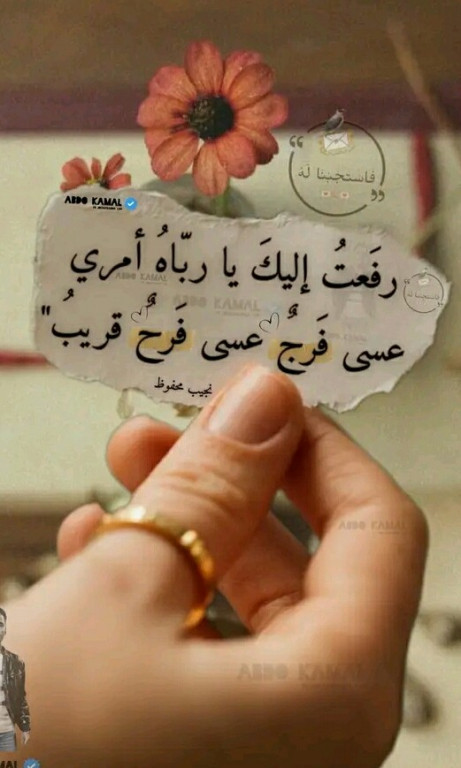 فاستجبنا لَهُ
ABDO KAMAL
رَفَعتُ إليكَ يا ربّاهُ أمري
عسى فَرجٌ عسى فَرحٌ قريبُ"
نجيب محفوظ
ABDO KAMAL
ABDO KAMAL
ABDO KAMAL